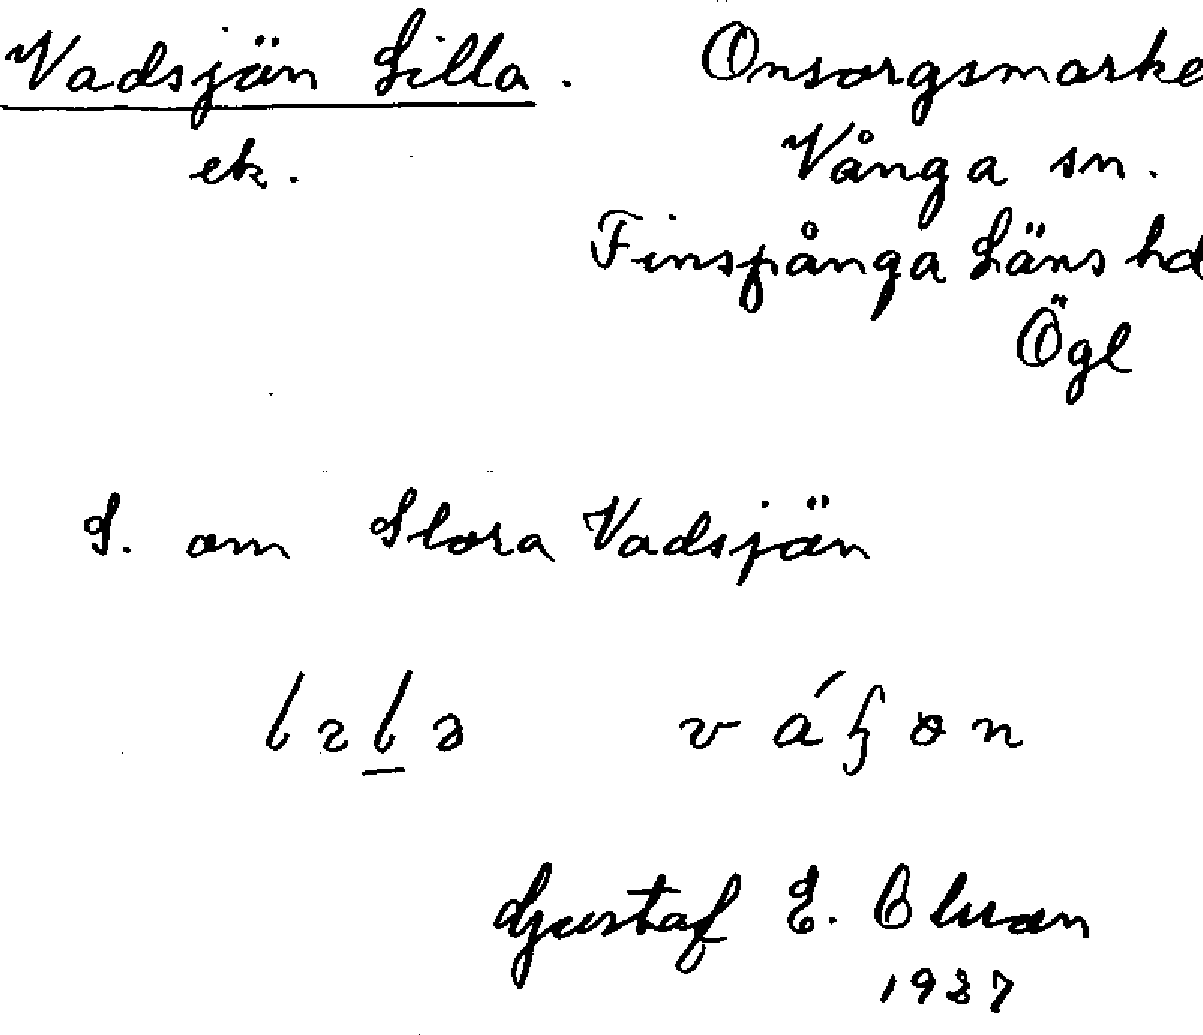 Vadsjön Lilla. Onsorgsmarke
ek. Vånga sn.
Finspånga Läns hd
Ögl
S. om Stora Vadsjön
Gustaf E.
1937